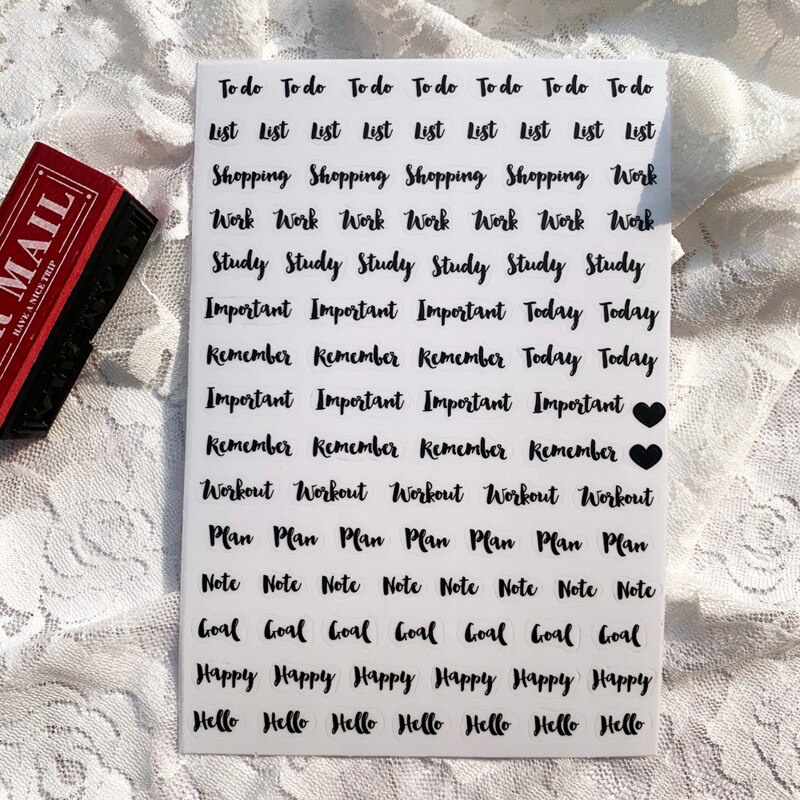 To do To do To do To do To do To do To do
List List List List List List List List List
Shopping Shopping Shopping Shopping Work
Work Work Work Work Work Work Work
Study Study Study Study Study Study
Important Important Important Today Today
Remember Remember Remember Today Today
Important Important Important Important
Remember Remember Remember Remember
Workout Workout Workout Workout Workout
Plan Plan Plan Plan Plan Plan Plan
Note Note Note Note Note Note Note Note
Goal Goal Goal Goal Goal Goal Goal
Happy Happy Happy Happy Happy Happy
Hello Hello Hello Hello Hello Hello Hello
MAIL
HAVE A NICE TRIP